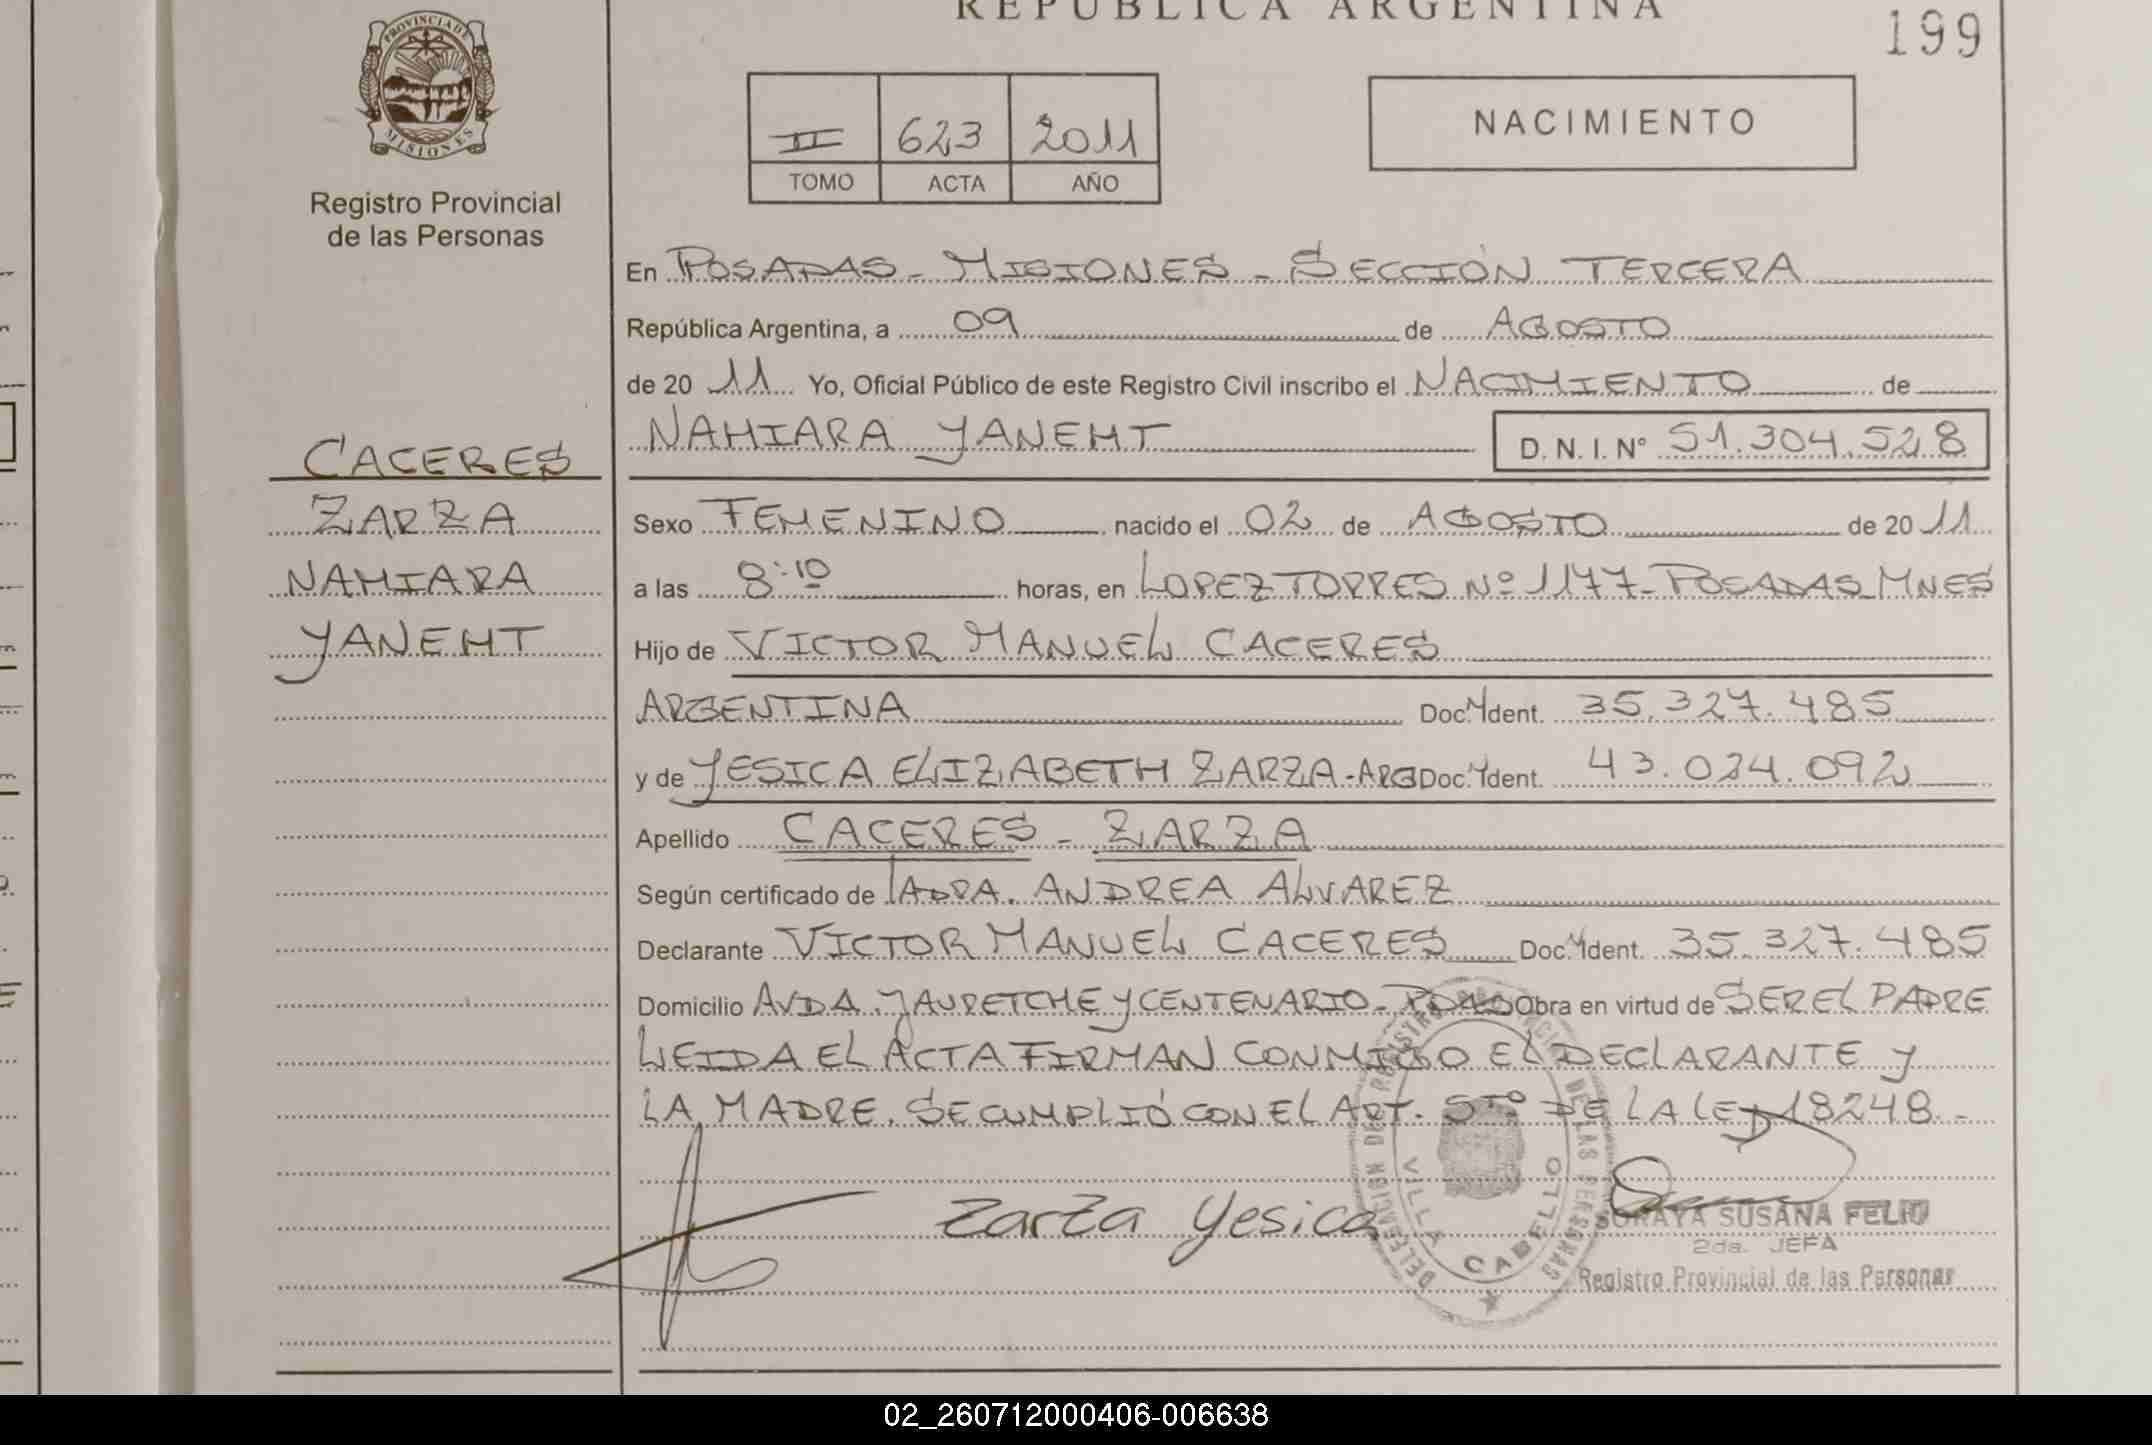 REPUBLICA ARGENTINA
199
PROVINCIA DE
MISIONES
Registro Provincial
de las Personas
II 623 2011
TOMO ACTA AÑO
NACIMIENTO
En POSADAS - MISIONES - SECCIÓN TERCERA
República Argentina, a 09 de AGOSTO
de 20 11 Yo, Oficial Público de este Registro Civil inscribo el NACIMIENTO de
NAHIARA YANEHT D. N. I. Nº 51.304.528
CACERES
ZARZA
NAHIARA
YANEHT
Sexo FEMENINO nacido el 02 de AGOSTO de 20 11
a las 8:10 horas, en LOPEZ TORRES Nº 1177 - POSADAS MNES
Hijo de VICTOR MANUEL CACERES
ARGENTINA Doc. Ident. 35.327.485
y de YESICA ELIZABETH ZARZA - ARG Doc. Ident. 43.024.092
Apellido CACERES - ZARZA
Según certificado de LA DRA. ANDREA ALVAREZ
Declarante VICTOR MANUEL CACERES Doc. Ident. 35.327.485
Domicilio AVDA. JAURETCHE Y CENTENARIO - PDAS Obra en virtud de SER EL PADRE
LEIDA EL ACTA FIRMAN CONMIGO EL DECLARANTE Y
LA MADRE. SE CUMPLIÓ CON EL ART. 5to DE LA LEY 18248.-
Zarza Yesica
DELEGACION DE REGISTRO PROVINCIAL DE LAS PERSONAS
VILLA CABELLO
SORAYA SUSANA FELIU
2da. JEFA
Registro Provincial de las Personas
02_260712000406-006638